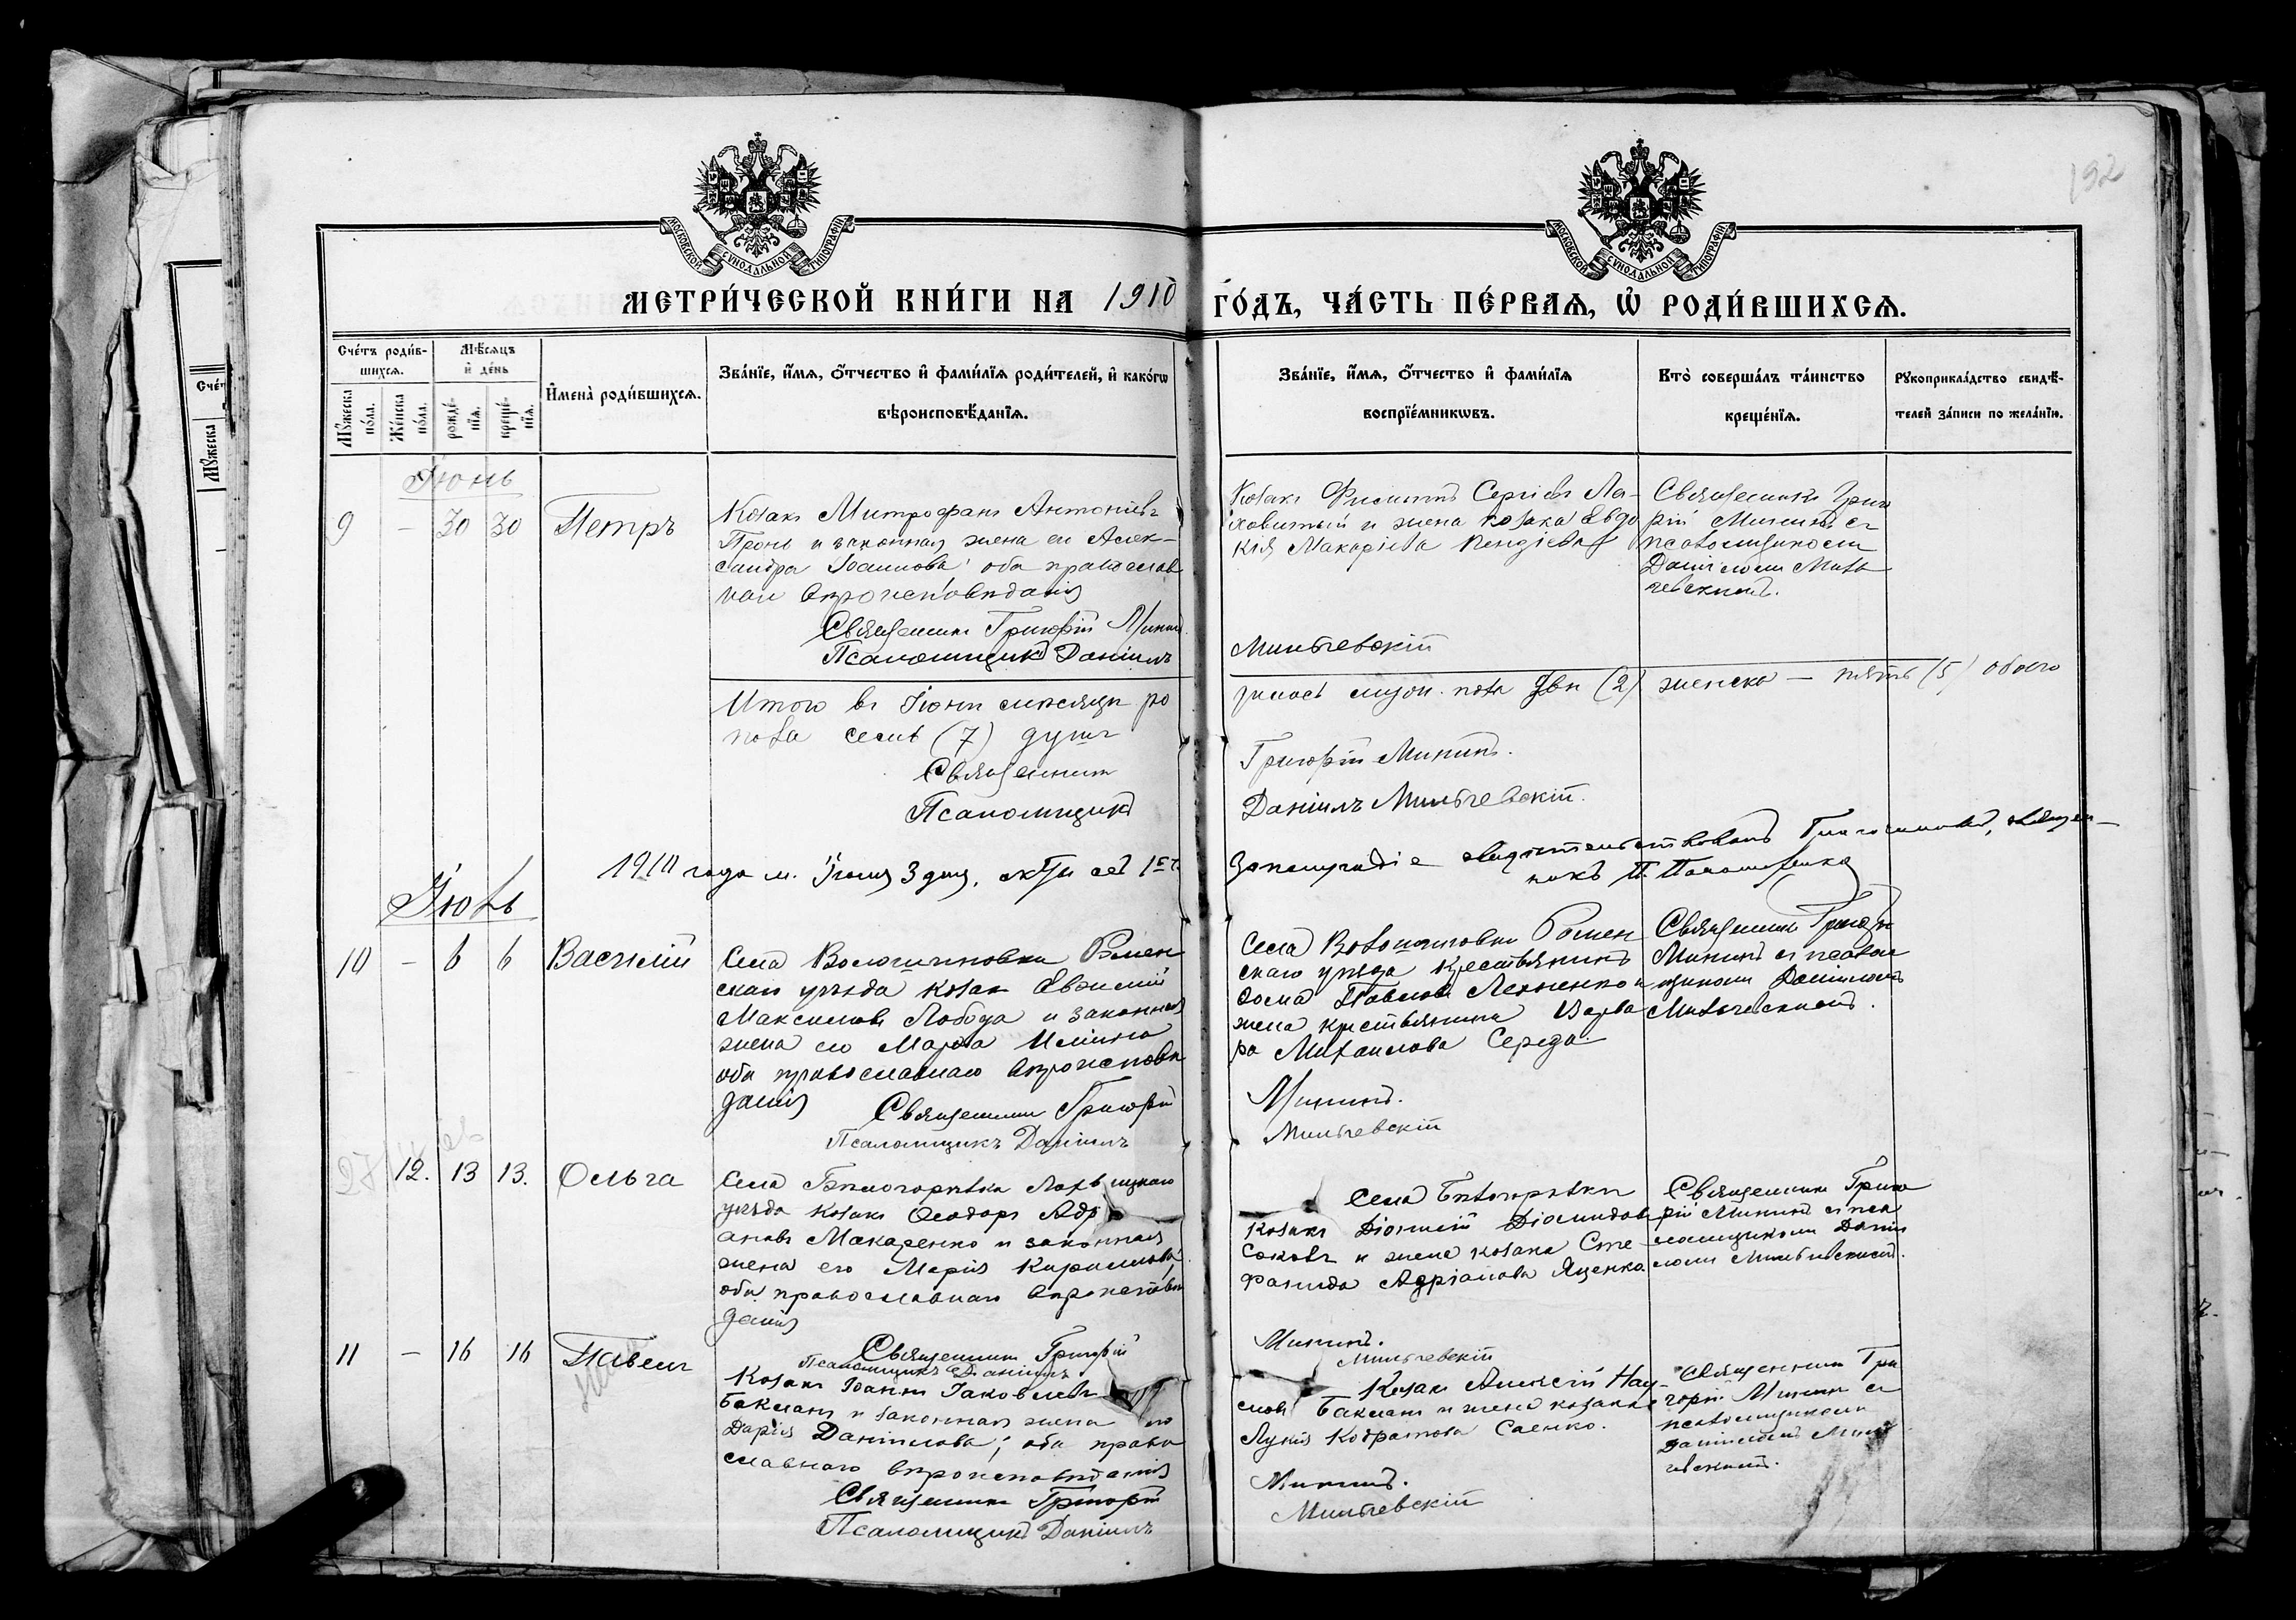 192
МОСКОВСКОЙ СѴНОДАЛЬНОЙ ТИПОГРАФІИ
МОСКОВСКОЙ СѴНОДАЛЬНОЙ ТИПОГРАФІИ
МЕТРИ́ЧЕСКОЙ КНИ́ГИ НА 1910 ГО́ДЪ, ЧА́СТЬ ПЕ́РВАѦ, Ѡ РОДИ́ВШИХСѦ.
Сче́тъ роди́в-
шихсѧ.
Мꙋ́жеска по́ла.
Же́нска по́ла.
Мѣ́сѧцъ
и҆ де́нь
рожде́-
нїѧ.
креще́-
нїѧ.
И҆мена̀ роди́вшихсѧ.
Зва́нїе, и҆́мѧ, ѻ҆́тчество и҆ фами́лїѧ роди́телей, и҆ како́гѡ
вѣроисповѣ́данїѧ.
Зва́нїе, и҆́мѧ, ѻ҆́тчество и҆ фами́лїѧ
воспрїе́мникѡвъ.
Кто̀ соверша́лъ та́инство
креще́нїѧ.
Рꙋкоприкла́дство свидѣ́-
телей за́писи по жела́нїю.
Сче́т
Мꙋ́жеска
Іюнь
9 — 30 30 Петръ
Козакъ Митрофанъ Антоніевъ
Пронь и законная жена его Алек-
сандра Іоаннова; оба православ
наго вѣроисповѣданія
Священникъ Григорій Мининъ
Псаломщикъ Даніилъ
Козакъ Филиппъ Сергіевъ
и жена козака Евдо
кія Макаріева
Священникъ Григо
рій Мининъ съ
псаломщикомъ
Даніиломъ Миль
чевскимъ.
Мильчевскій
Итого въ Іюнѣ мѣсяцѣ ро
дилось муж. пола два (2) женска — пять (5) обоего
пола семь (7) душъ
Священникъ Григорій Мининъ.
Псаломщикъ Даніилъ Мильчевскій.
1910 года м. Іюля 3 дня, акты сей 1ой
свидѣтельствовалъ Благочинный, священ-
никъ П.
Іюль
10 — 6 6 Василій
Села Волошиновки Ромен
скаго уѣзда козакъ Евфимій
Максимовъ Лобода и законная
жена его Марѳа Ильина
оба православнаго вѣроисповѣ
данія
Священникъ Григорій
Псаломщикъ Даніилъ
Села Волошиновки Ромен
скаго уѣзда крестьянинъ
Ѳома Павловъ и
жена крестьянина Варва
ра Михаилова Середа.
Мининъ.
Мильчевскій
Священникъ Григорій
Мининъ съ псалом
щикомъ Даніиломъ
Мильчевскимъ.
12. 13 13. Ольга
Села Бѣлогорѣлка Лохвицкаго
уѣзда козакъ Ѳеодоръ Адрі
ановъ Макаренко и законная
жена его Марія Кириллова;
оба православнаго вѣроисповѣ
данія
Священникъ Григорій
Псаломщикъ Даніилъ
Села Бѣлогорѣлки
козакъ Діонисій Діомидовъ
Соковъ и жена козака Сте-
фанида Адріанова Яценко
Мининъ.
Мильчевскій
Священникъ Григо
рій Мининъ съ пса
ломщикомъ Даніи
ломъ Мильчевскимъ.
11 — 16 16 Павелъ
Козакъ Іоаннъ Іаковлевъ
Бакланъ и законная жена его
Дарія Даніилова; оба право
славнаго вѣроисповѣданія
Священникъ Григорій
Псаломщикъ Даніилъ
Козакъ Алексій Нау-
мовъ Бакланъ и жена козака
Лукія Кодратова Саенко.
Мининъ.
Мильчевскій
Священникъ Гри
горій Мининъ съ
псаломщикомъ
Даніиломъ Миль
чевскимъ.